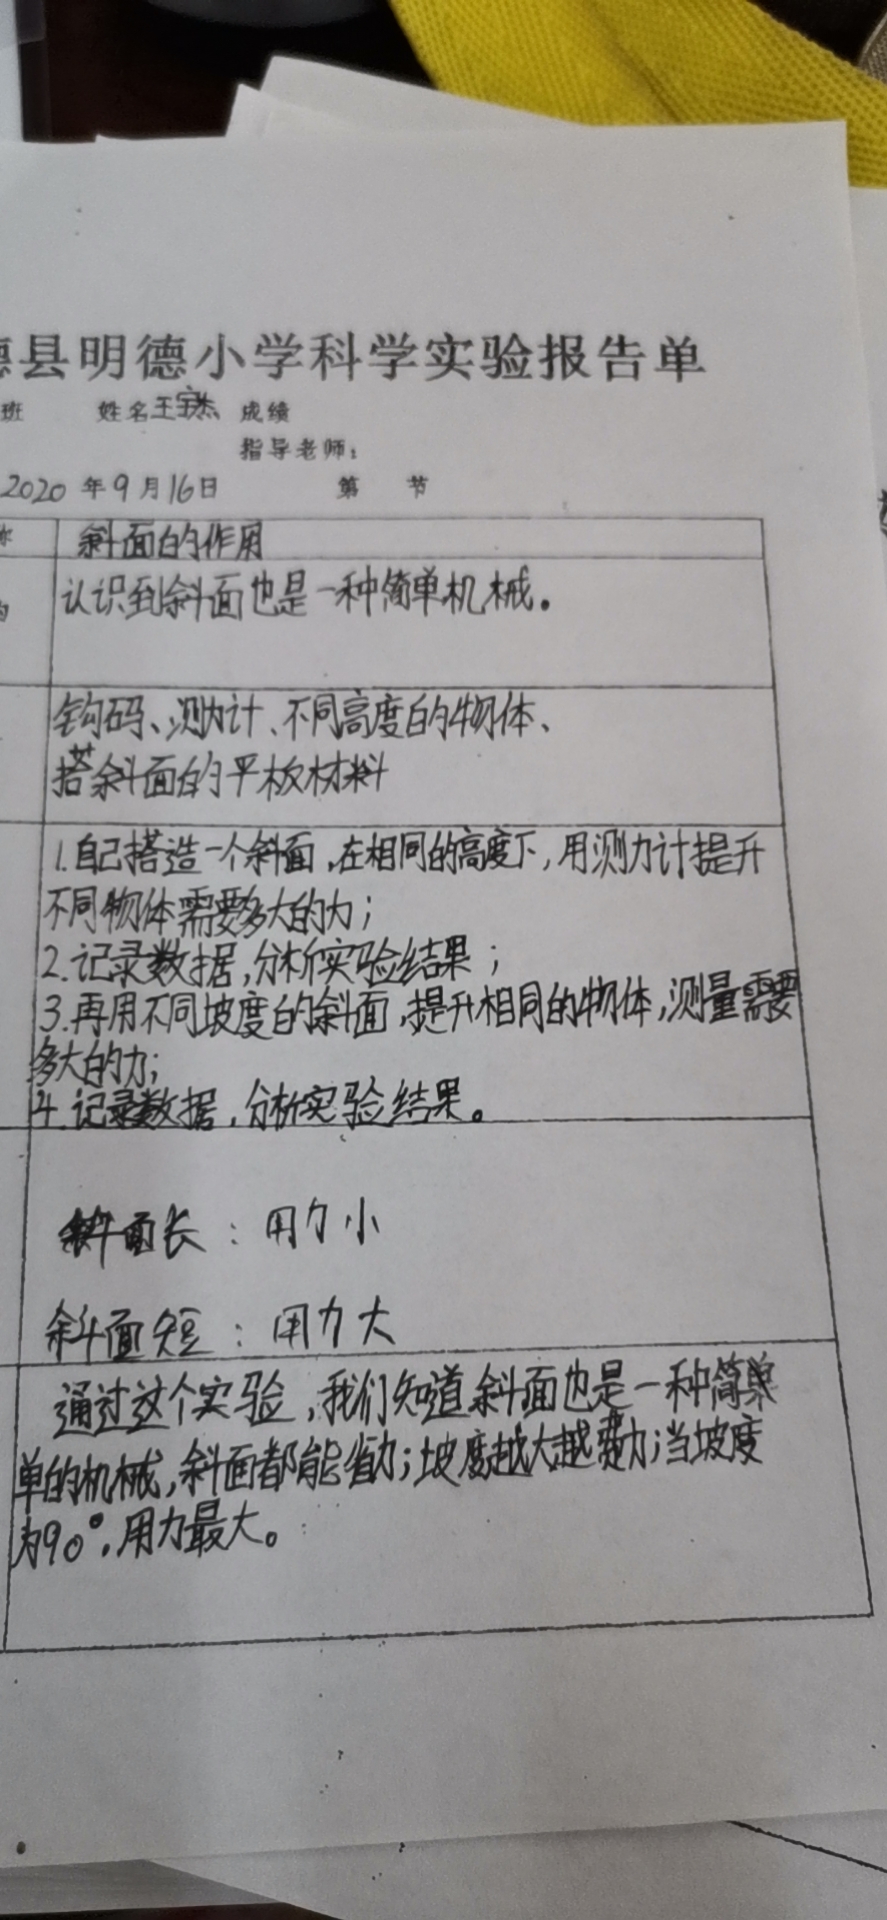 德县明德小学科学实验报告单
班 姓名王宇杰 成绩
指导老师：
2020 年 9 月 16 日 第 节
斜面的作用
认识到斜面也是一种简单机械。
钩码、测力计、不同高度的物体、
搭斜面的平板材料
1.自己搭造一个斜面,在相同的高度下,用测力计提升
不同物体需要多大的力;
2.记录数据,分析实验结果;
3.再用不同坡度的斜面,提升相同的物体,测量需要
多大的力;
4.记录数据,分析实验结果。
斜面长：用力小
斜面短：用力大
通过这个实验,我们知道斜面也是一种简单
单的机械,斜面都能省力;坡度越大越费力;当坡度
为90°,用力最大。